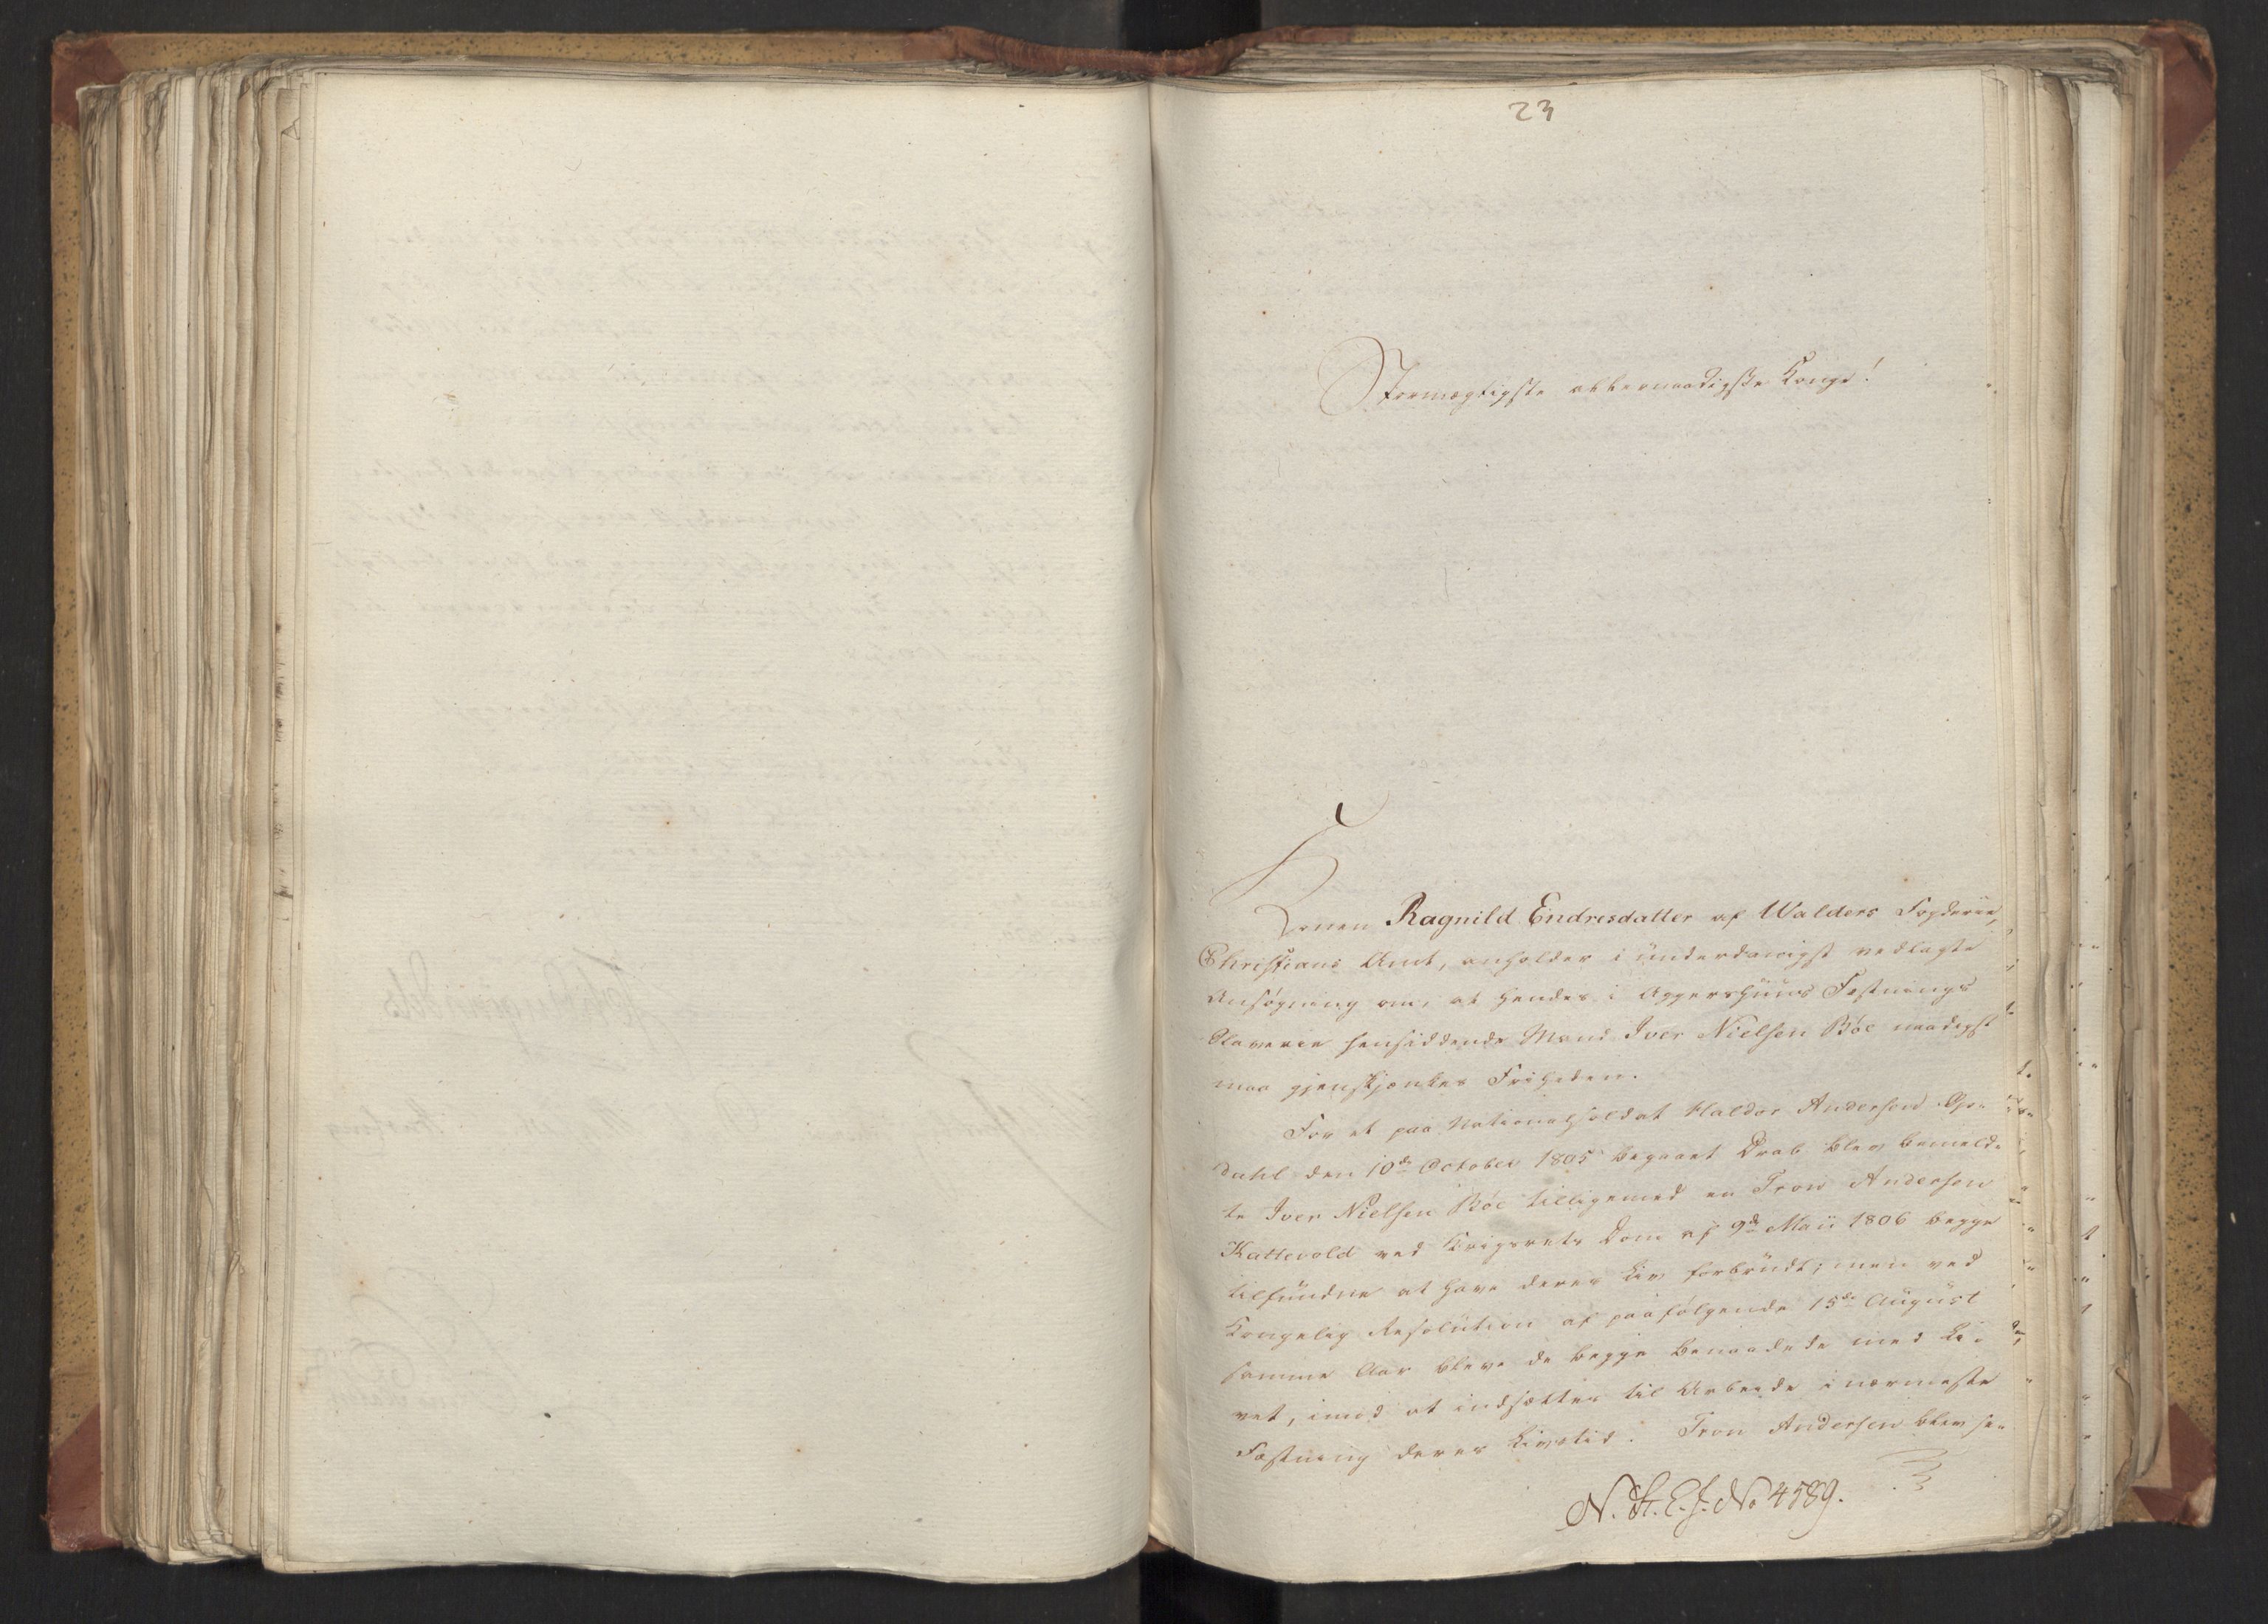 23
Stormægtigste allernaadigste Konge!
Konen Ragnild Endresdatter af Walders Fogderie,
Christians Amt, anholder i underdanigst vedlagte
Ansøgning om, at hendes i Aggershuus Fæstnings
Slaverie hensiddende Mand Iver Nielsen Bøe naadigst
maa gjenskjænkes Friheden.
For et paa Nationalsoldat Haldor Andersen
dahl den 10de October 1805 begaaet Drab blev bemeld-
te Iver Nielsen Bøe tilligemed en Tron Andersen
Kattevold ved Krigsrets Dom af 9de Maii 1806 begge
tilfundne at have deres Liv forbrudt; men ved
Kongelig Resolution af paafølgende 15de August
samme Aar bleve de begge benaadede med Li-
vet, imod at indsættes til Arbeide i nærmeste
Fæstning deres Livstid. Tron Andersen blev se-
N. St. E. J. No 4589.